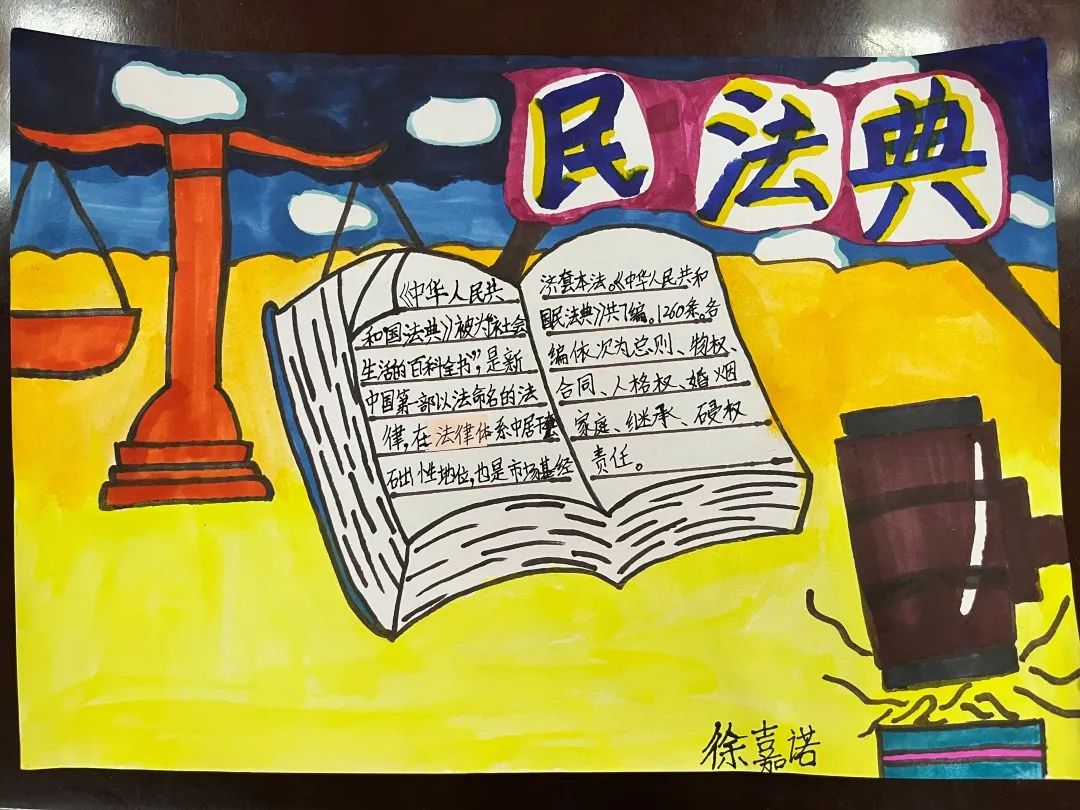 民法典
《中华人民共
和国法典》被为"社会
生活的百科全书",是新
中国第一部以法命名的法
律,在法律体系中居于基
础性地位,也是市场基经
济套本法。《中华人民共和
国民法典》共7编。1260条。各
编依次为总则、物权、
合同、人格权、婚姻
家庭、继承、侵权
责任。
徐嘉诺